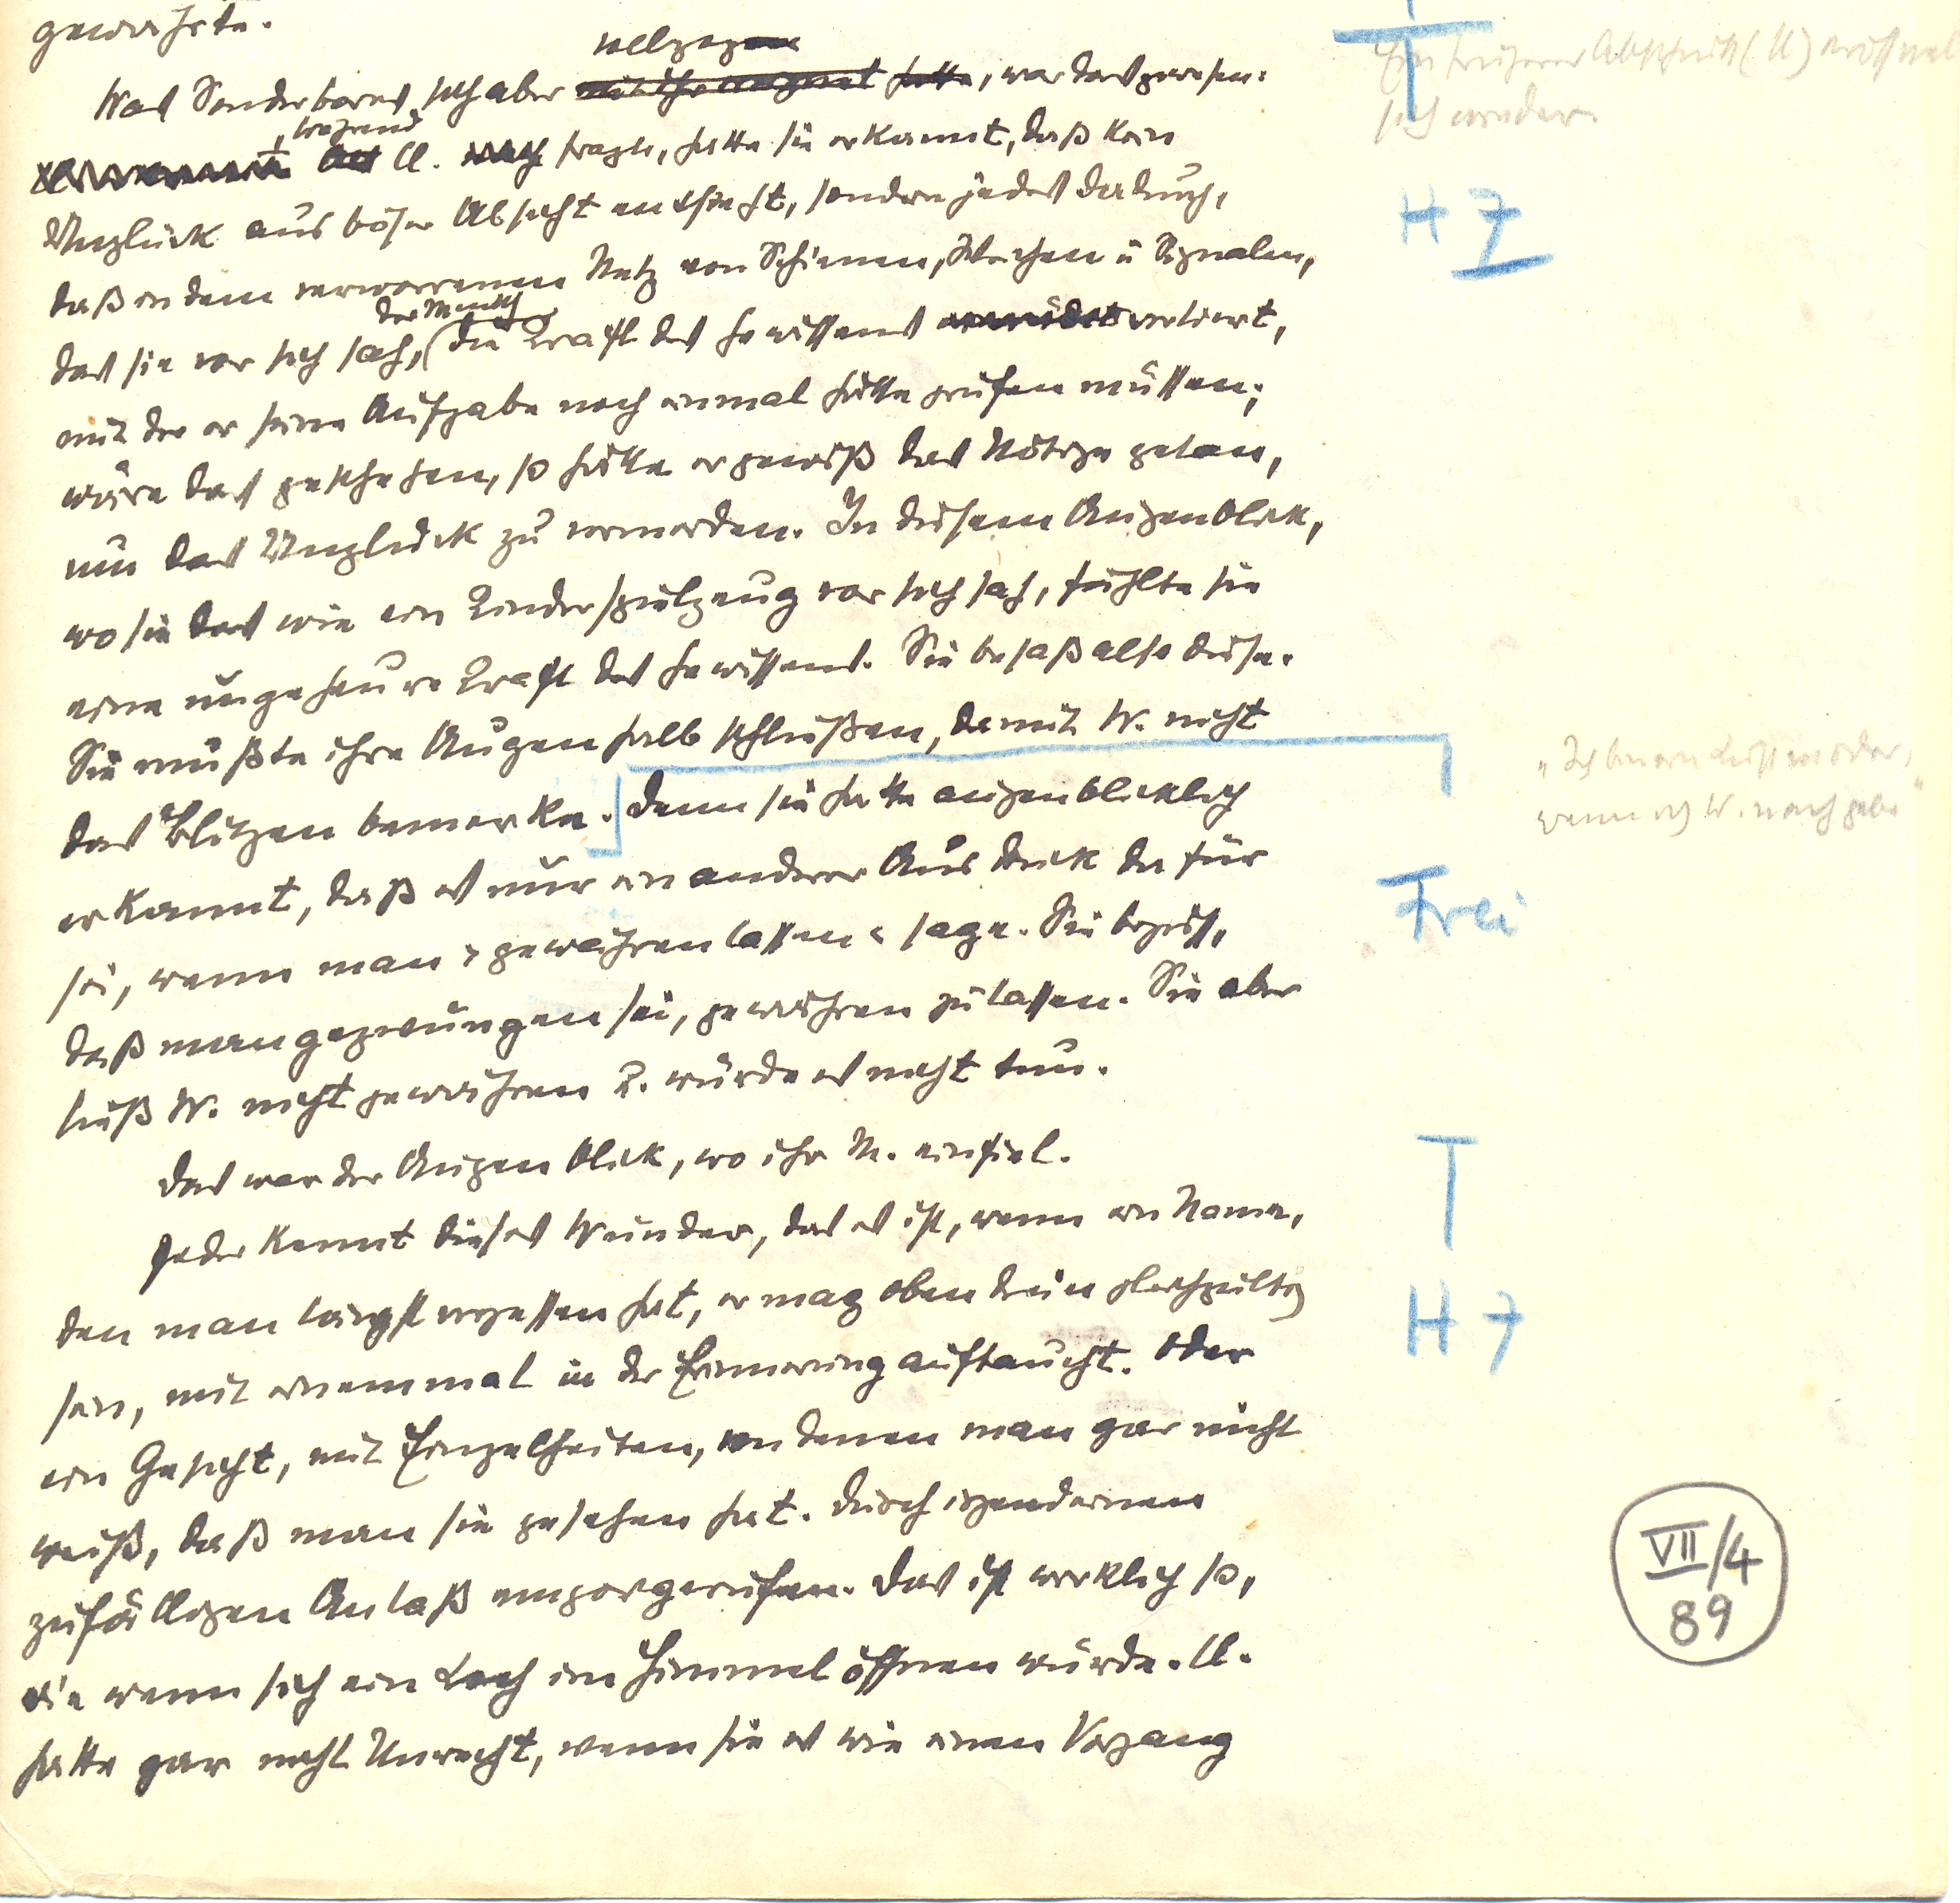 gewährte.
vollzogen
Was Sonderbares sich aber mit ihr ereignet hatte, war das gewesen:
während
Cl. fragte, hatte sie erkannt, daß kein
Unglück aus böser Absicht entsteht, sondern jedes dadurch,
daß in dem verworrenen Netz von Schienen, Weichen u Signalen,
der Mensch
das sie vor sich sah, die Kraft des Gewissens verliert,
mit der er seine Aufgabe noch einmal hätte prüfen müssen;
wäre das geschehen, so hätte er gewiß das Nötige getan,
um das Unglück zu vermeiden. In diesem Augenblick,
wo sie das wie ein Kinderspielzeug vor sich sah, fühlte sie
eine ungeheure Kraft des Gewissens. Sie besaß also diese.
Sie mußte ihre Augen halb schließen, damit W. nicht
das Blitzen bemerke. Denn sie hatte augenblicklich
erkannt, daß es nur ein anderer Ausdruck dafür
sei, wenn man »gewähren lassen« sage. Sie begriff,
daß man gezwungen sei, gewähren zu lassen. Sie aber
ließ W. nicht gewähren u. würde es nicht tun.
Das war der Augenblick, wo ihr M. einfiel.
Jeder kennt dieses Wunder, das es ist, wenn ein Name,
den man längst vergessen hat, er mag obendrein gleichgültig
sein, mit einemmal in der Erinnerung auftaucht. Oder
ein Gesicht, mit Einzelheiten, von denen man gar nicht
weiß, daß man sie gesehen hat. Durch irgendeinen
zufälligen Anlaß emporgerufen. Das ist wirklich so,
wie wenn sich ein Loch im Himmel öffnen würde. Cl.
hatte gar nicht Unrecht, wenn sie es wie einen Vorgang
T
Ein früherer Abschnitt (U) eröffnet
sich wieder.
H 7
„Ich bin ein Lustmörder,
wenn ich W. nachgebe“
Frei
T
H 7
VII/4
89